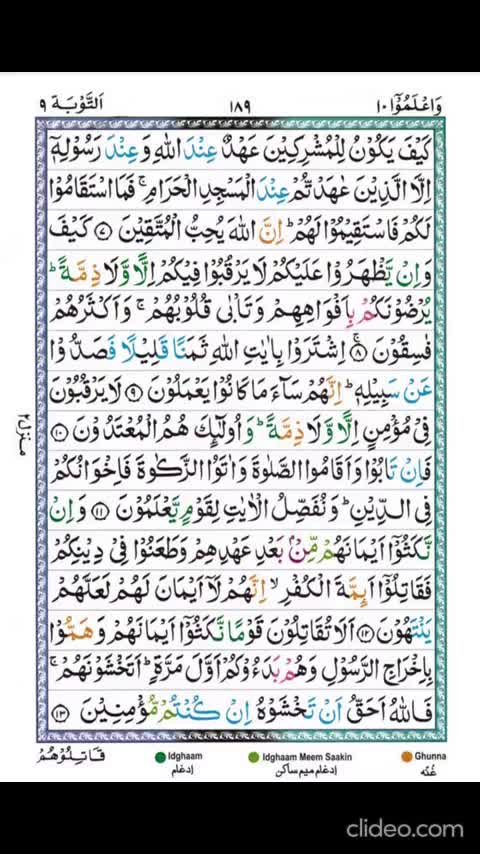 وَاعْلَمُوْۤا ۱۰ ۱۸۹ اَلتَّوْبَة ۹
كَيْفَ يَكُوْنُ لِلْمُشْرِكِيْنَ عَهْدٌ عِنْدَ اللّٰهِ وَعِنْدَ رَسُوْلِهٖۤ
اِلَّا الَّذِيْنَ عٰهَدْتُّمْ عِنْدَ الْمَسْجِدِ الْحَرَامِ ۚ فَمَا اسْتَقَامُوْا
لَكُمْ فَاسْتَقِيْمُوْا لَهُمْ ؕ اِنَّ اللّٰهَ يُحِبُّ الْمُتَّقِيْنَ ۷ كَيْفَ
وَاِنْ يَّظْهَرُوْا عَلَيْكُمْ لَا يَرْقُبُوْا فِيْكُمْ اِلًّا وَّلَا ذِمَّةً ؕ
يُرْضُوْنَكُمْ بِاَفْوَاهِهِمْ وَتَاْبٰى قُلُوْبُهُمْ ۚ وَاَكْثَرُهُمْ
فٰسِقُوْنَ ۸ اِشْتَرَوْا بِاٰيٰتِ اللّٰهِ ثَمَنًا قَلِيْلًا فَصَدُّوْا
عَنْ سَبِيْلِهٖ ؕ اِنَّهُمْ سَآءَ مَا كَانُوْا يَعْمَلُوْنَ ۹ لَا يَرْقُبُوْنَ
فِيْ مُؤْمِنٍ اِلًّا وَّلَا ذِمَّةً ؕ وَاُولٰٓئِكَ هُمُ الْمُعْتَدُوْنَ ۱۰
فَاِنْ تَابُوْا وَاَقَامُوا الصَّلٰوةَ وَاٰتَوُا الزَّكٰوةَ فَاِخْوَانُكُمْ
فِي الدِّيْنِ ؕ وَنُفَصِّلُ الْاٰيٰتِ لِقَوْمٍ يَّعْلَمُوْنَ ۱۱ وَاِنْ
نَّكَثُوْۤا اَيْمَانَهُمْ مِّنْۢ بَعْدِ عَهْدِهِمْ وَطَعَنُوْا فِيْ دِيْنِكُمْ
فَقَاتِلُوْۤا اَئِمَّةَ الْكُفْرِ ۙ اِنَّهُمْ لَاۤ اَيْمَانَ لَهُمْ لَعَلَّهُمْ
يَنْتَهُوْنَ ۱۲ اَلَا تُقَاتِلُوْنَ قَوْمًا نَّكَثُوْۤا اَيْمَانَهُمْ وَهَمُّوْا
بِاِخْرَاجِ الرَّسُوْلِ وَهُمْ بَدَءُوْكُمْ اَوَّلَ مَرَّةٍ ؕ اَتَخْشَوْنَهُمْ ۚ
فَاللّٰهُ اَحَقُّ اَنْ تَخْشَوْهُ اِنْ كُنْتُمْ مُّؤْمِنِيْنَ ۱۳
منزل ۲
قَاتِلُوْهُمْ Idghaam Idghaam Meem Saakin Ghunna
اِدغام اِدغام میم ساکن غُنّه
clideo.com